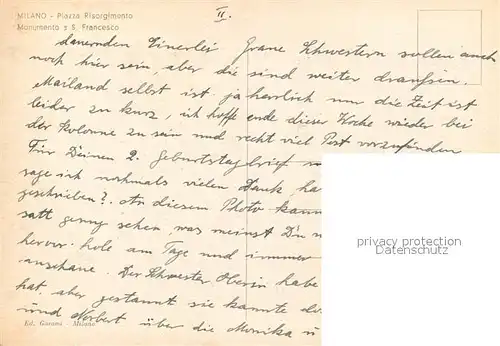 MILANO - Piazza Risorgimento
Monumento a S. Francesco
II.
dauernden Einerlei Graue Schwestern sollen auch
noch hier sein, aber die sind weiter draußen.
Mailand selbst ist ja herrlich nur die Zeit ist
leider zu kurz, ich hoffe ende dieser Woche wieder bei
der Kolonne zu sein und recht viel Post vorzufinden
Für Deinen 2. Geburtstagbrief
sage ich nochmals vielen Dank, ha
geschrieben? An diesem Photo kann
satt genug sehen, was meinst Du
hervor hole am Tage und immer
anschaue. Der Schwester Oberin habe
hat aber gestaunt sie kannte
und Norbert über die Monika u
Ed. Garami - Milano
privacy protection
MARCELMAROTZKE.DE